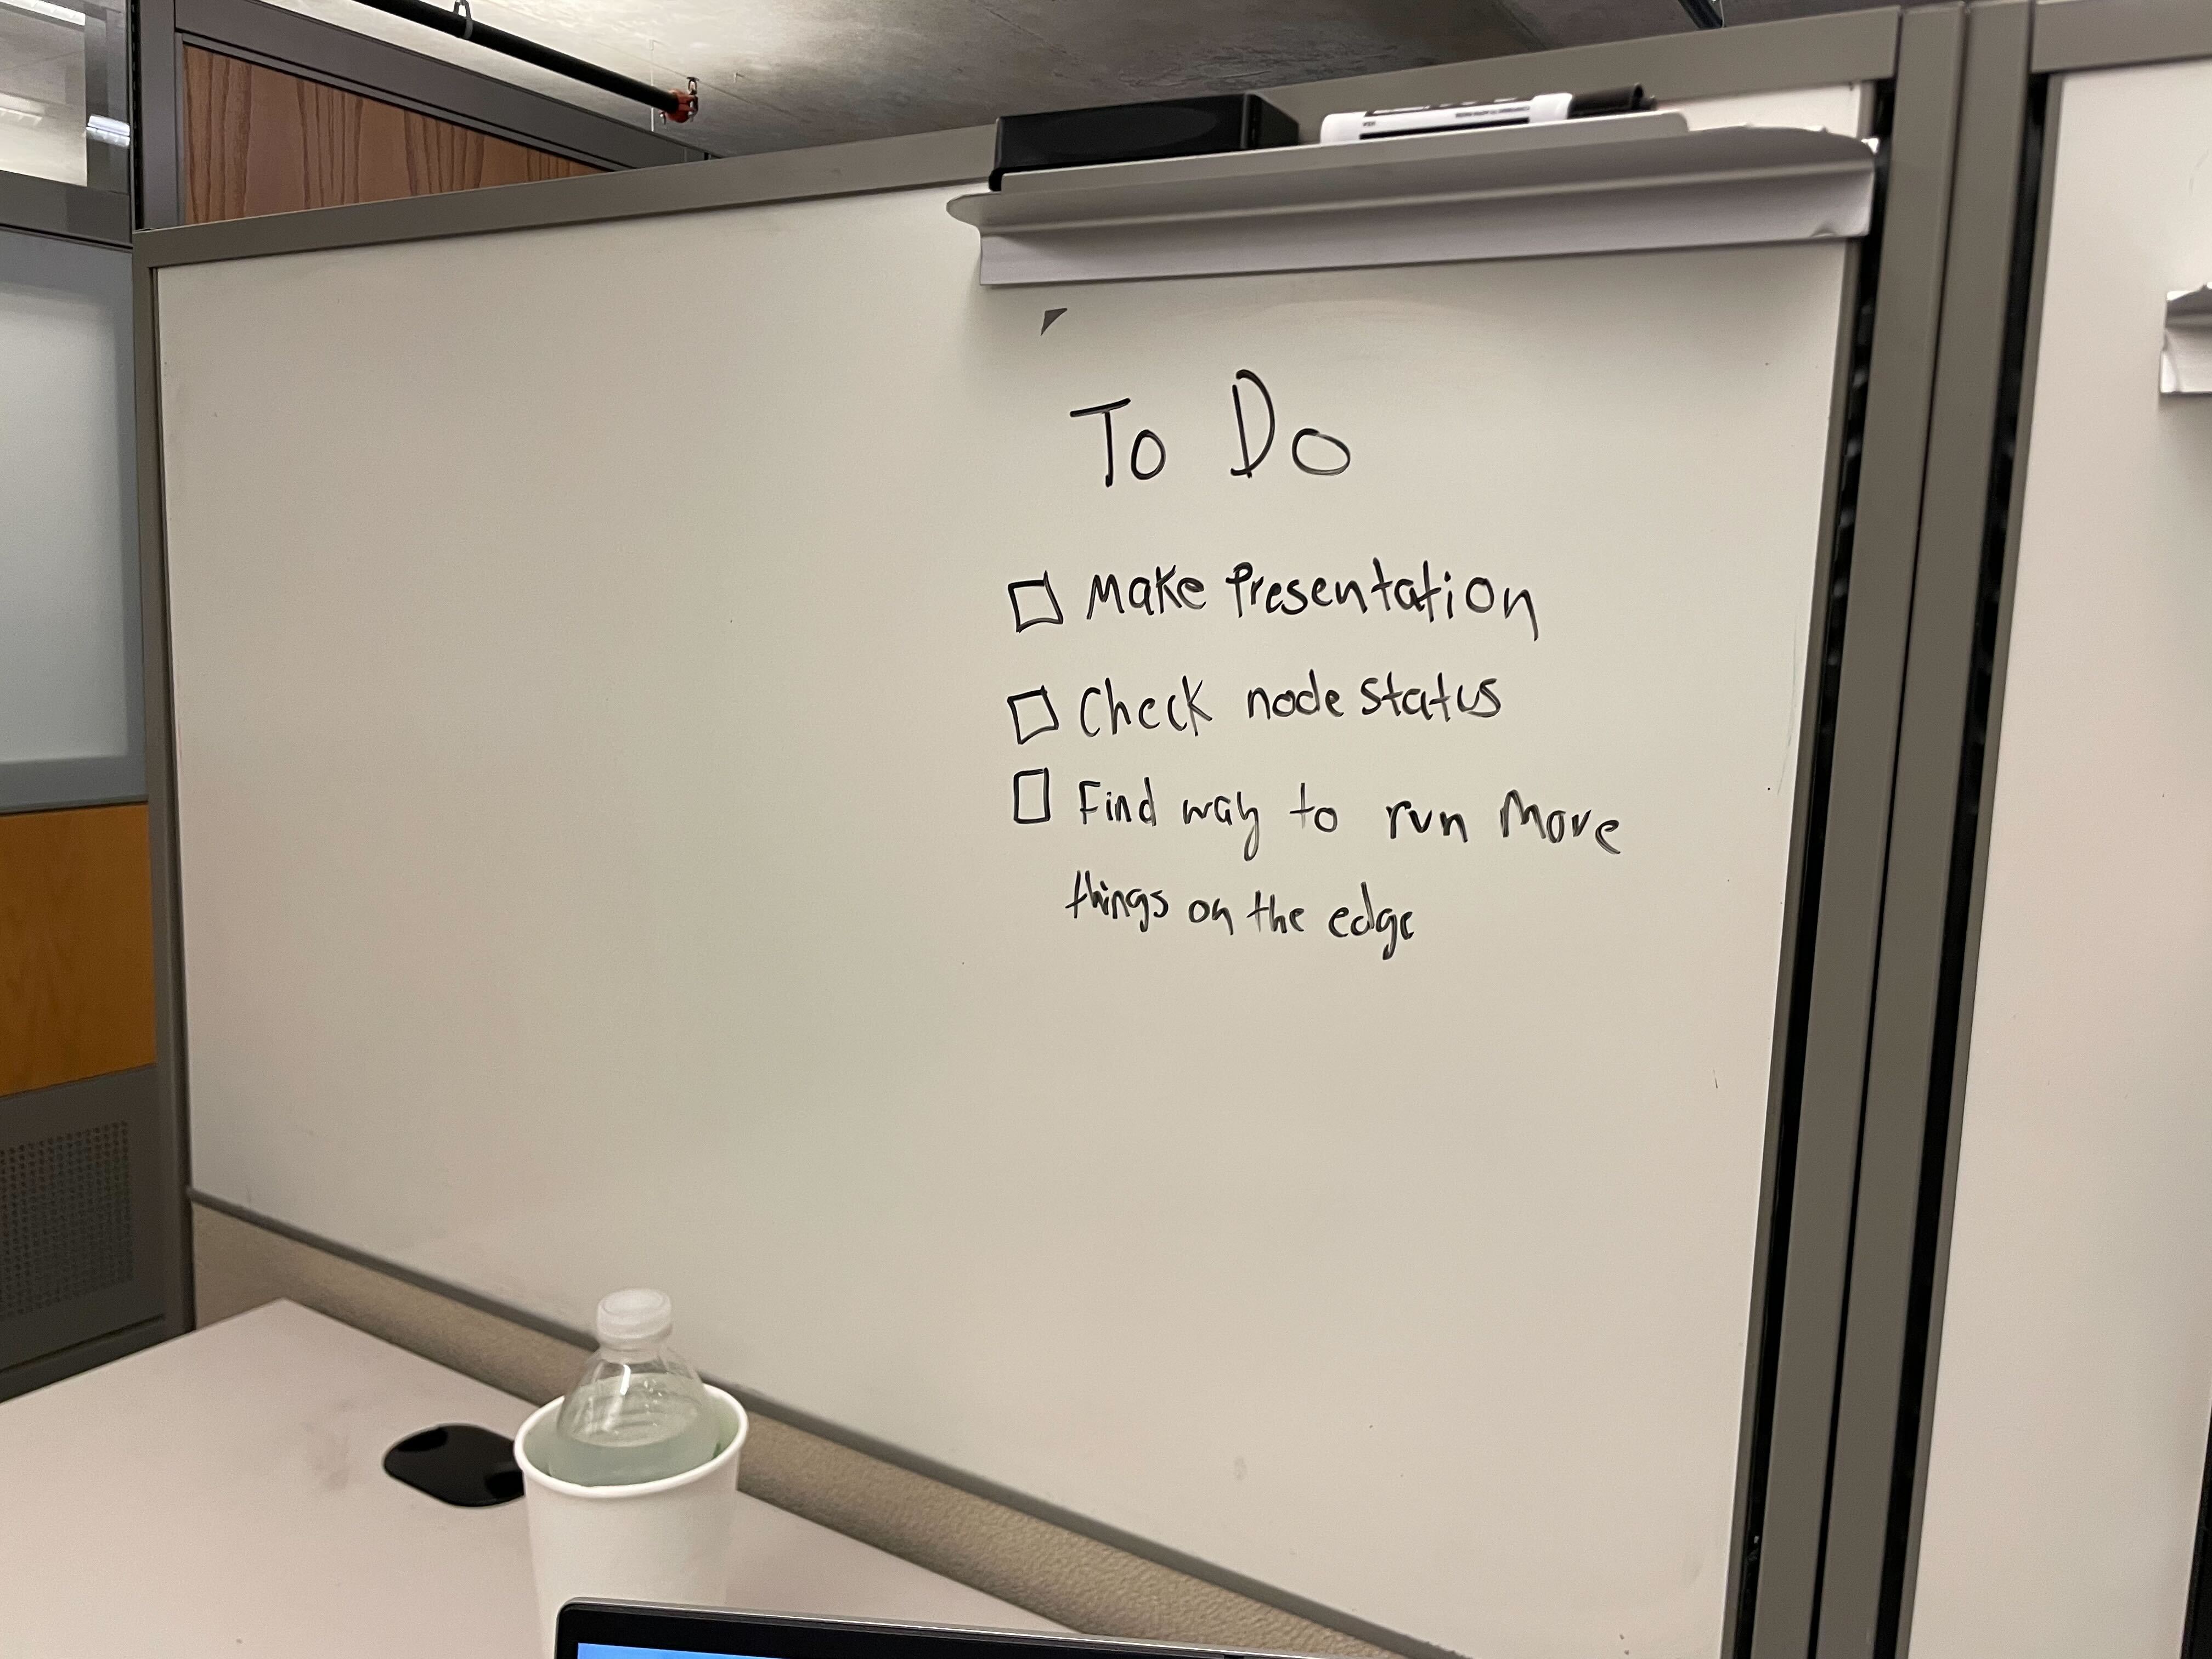 To Do
Make Presentation
Check node status
Find way to run more
things on the edge